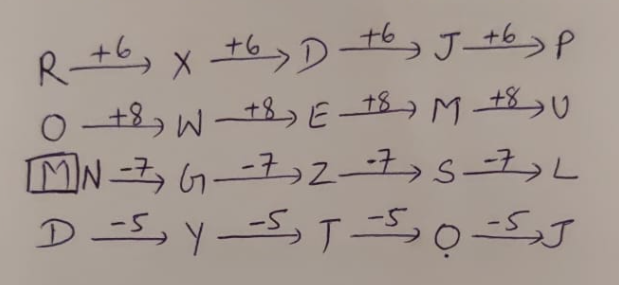 R +6→ X +6→ D +6→ J +6→ P
O +8→ W +8→ E +8→ M +8→ U
M N -7→ G -7→ Z -7→ S -7→ L
D -5→ Y -5→ T -5→ O -5→ J